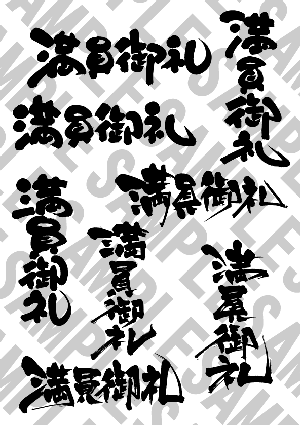 満員御礼
満員御礼
満員御礼
満員御礼
満員御礼
満員御礼
満員御礼
満員御礼
SAMPLE SAMPLE SAMPLE